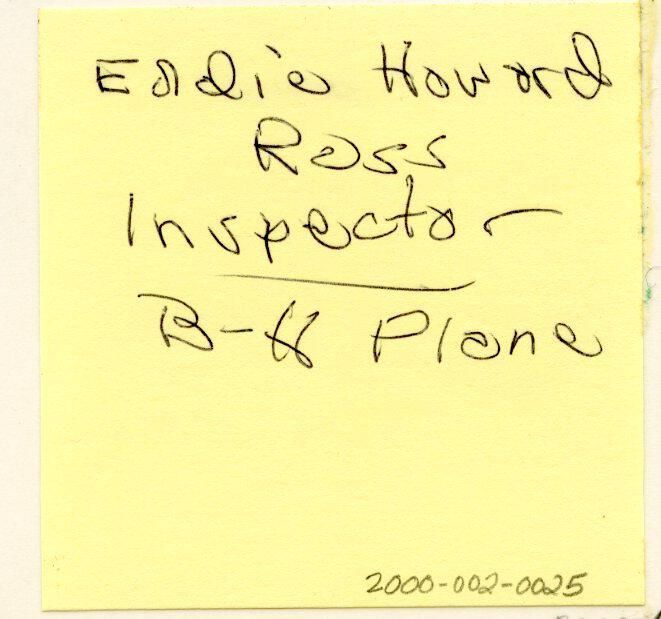 Eddie Howard
Ross
Inspector
Plane
2000-002-0025